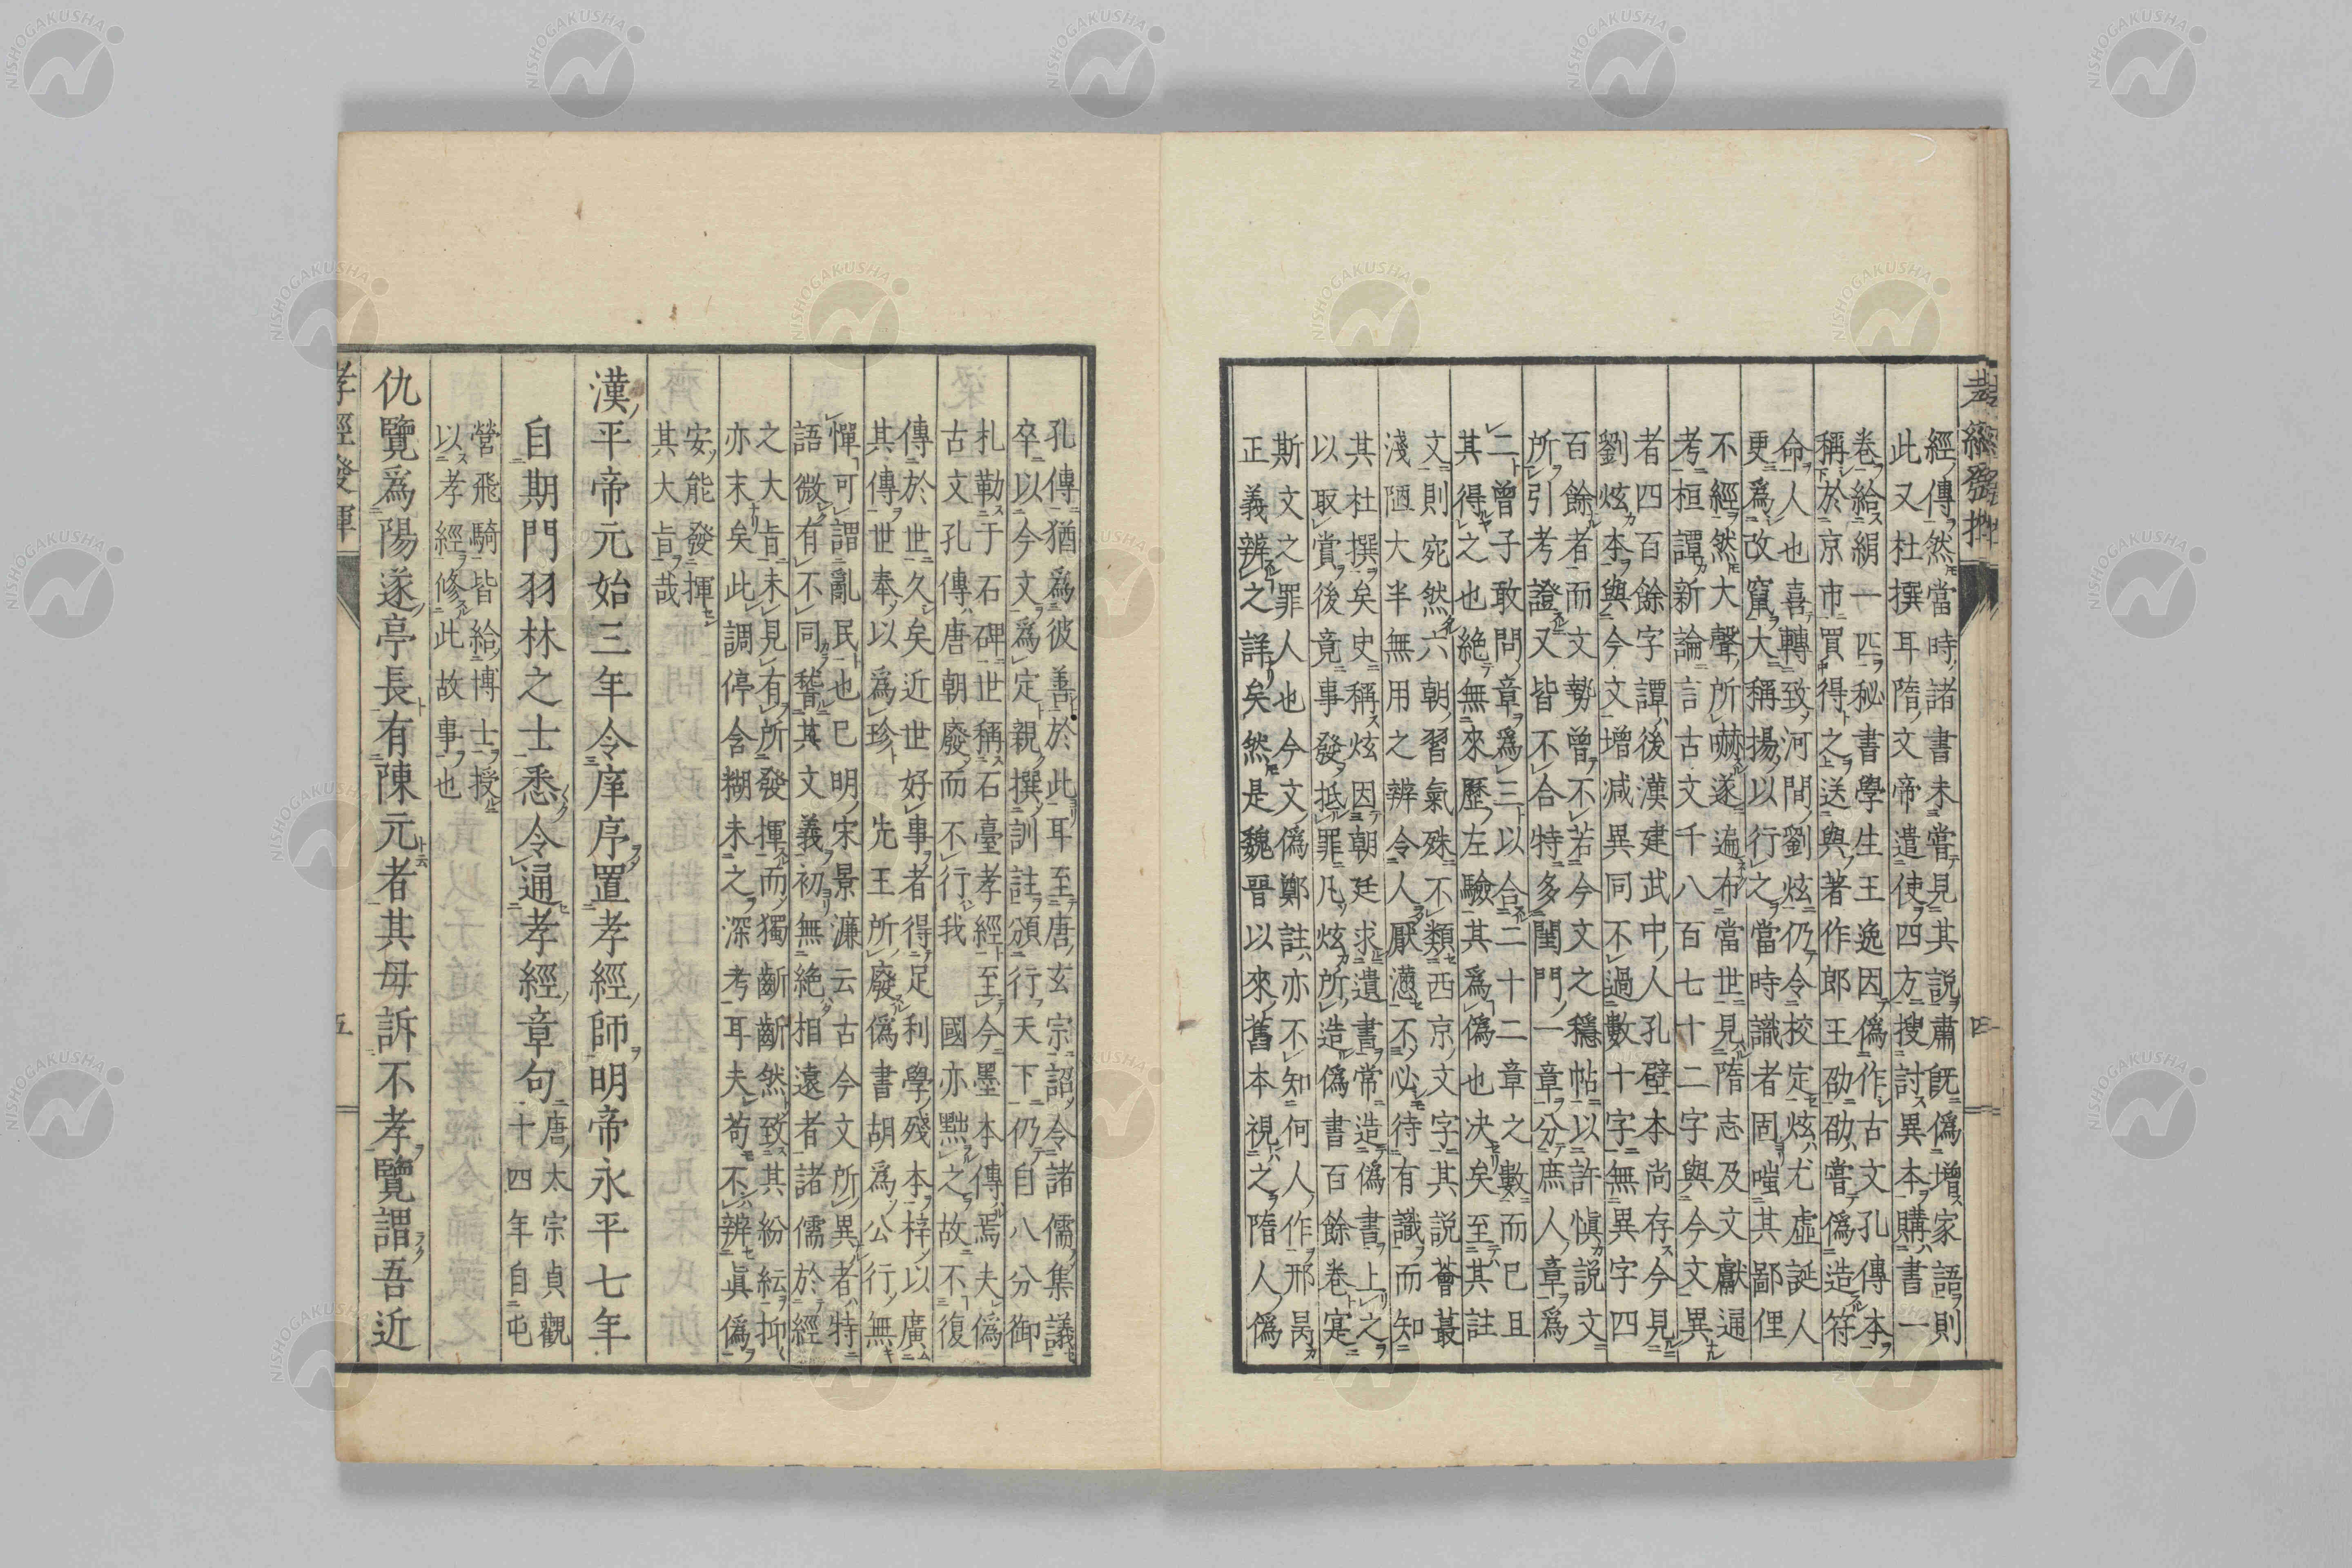 孝經發揮
四
經傳然當時諸書未嘗見其説肅旣僞增家語則
此又杜撰耳隋文帝遣使四方搜討異本購書一
卷給絹一匹秘書學生王逸因僞作古文孔傳本
稱於京市買得之送與著作郎王劭劭嘗僞造符
命人也喜轉致河間劉炫仍令校定炫尤虛誕人
更爲改竄大稱揚以行之當時識者固嗤其鄙俚
不經然大聲所嚇遂遍布當世見隋志及文獻通
考桓譚新論言古文千八百七十二字與今文異
者四百餘字譚後漢建武中人孔壁本尚存今見
劉炫本與今文增减異同不過數十字無異字四
百餘者而文勢曾不若今文之穩帖以許愼説文
所引考證又皆不合特多閨門一章分庶人章爲
二曾子敢問章爲三以合二十二章之數而已且
其得之也絶無來歷左驗其爲僞也决矣至其註
文則宛然六朝習氣殊不類西京文字其説薈蕞
淺陋大半無用之辨令人厭懣不必待有識而知
其杜撰矣史稱炫因朝廷求遺書常造僞書上之
以取賞後竟事發抵罪凡炫所造僞書百餘卷寔
斯文之罪人也今文僞鄭註亦不知何人作邢昺
正義辨之詳矣然是魏晉以來舊本視之隋人僞
孔傳猶爲彼善於此耳至唐玄宗詔令諸儒集議
卒以今文爲定親撰訓註頒行天下仍自八分御
札勒于石碑世稱石臺孝經至今墨本傳焉夫僞
古文孔傳唐朝廢而不行我國亦黜之故不復
傳於世久矣近世好事者得足利學殘本梓以廣
其傳世奉以爲珍先王所廢僞書胡爲公行無
憚可謂亂民也已明宋景濂云古今文所異者特
語微有不同稽其文義初無絶相遠者諸儒於經
之大旨未見有所發揮而獨齗齗然致其紛紜抑
亦末矣此調停含糊未之深考耳夫苟不辨眞僞
安能發揮
其大旨哉
漢平帝元始三年令庠序置孝經師明帝永平七年
自期門羽林之士悉令通孝經章句
唐太宗貞觀
十四年自屯
營飛騎皆給博士授
以孝經修此故事也
仇覽爲陽遂亭長有陳元者其母訴不孝覽謂吾近
孝經發揮
五
NISHOGAKUSHA